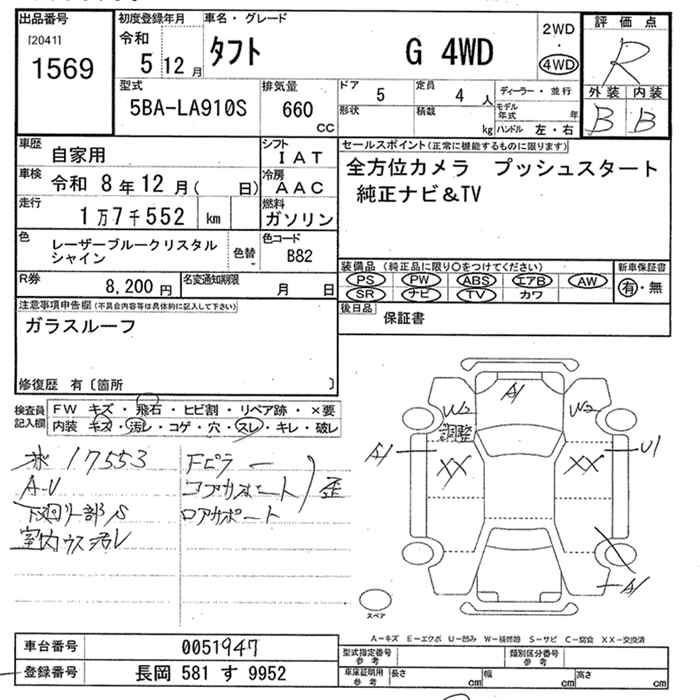 出品番号
[2041]
1569
初度登録年月
令和
5 12 月
車名・グレード
タフト G 4WD
2WD
・
4WD
評価点
R
外装 内装
B B
型式
5BA-LA910S
排気量
660
cc
ドア
5
定員
4 人
形状
積載
kg
ディーラー・並行
モデル年式 年
ハンドル 左・右
車歴
自家用
シフト
I A T
車検
令和 8年12月( 日)
冷房
A A C
走行
1万7千552 km
燃料
ガソリン
色
レーザーブルークリスタル
シャイン
色替
色コード
B82
R券
8,200円
名変通知期限
月 日
セールスポイント(正常に機能するものに限ります)
全方位カメラ プッシュスタート
純正ナビ&TV
装備品(純正品に限り○をつけてください)
PS PW ABS エアB AW
SR ナビ TV カワ
新車保証書
有・無
後日品
保証書
注意事項申告欄(不具合内容等は具体的に記入して下さい)
ガラスルーフ
修復歴 有〔箇所 〕
検査員
記入欄
FW キズ・飛石・ヒビ割・リペア跡・×要
内装 キズ・汚レ・コゲ・穴・スレ・キレ・破レ
17553
A-U
下廻り一部S
室内ウス汚レ
Fピラー
コアサポート
ロアサポート
歪
A1
W2
調整
W2
A1
XX
XX
U1
A1
スペア
A-キズ E-エクボ U-凹み W-補修跡 S-サビ C-腐食 XX-交換済
車台番号
0051947
登録番号
長岡 581 す 9952
型式指定番号
参考
類別区分番号
参考
車庫証明用
参考
長さ cm
幅 cm
高さ cm